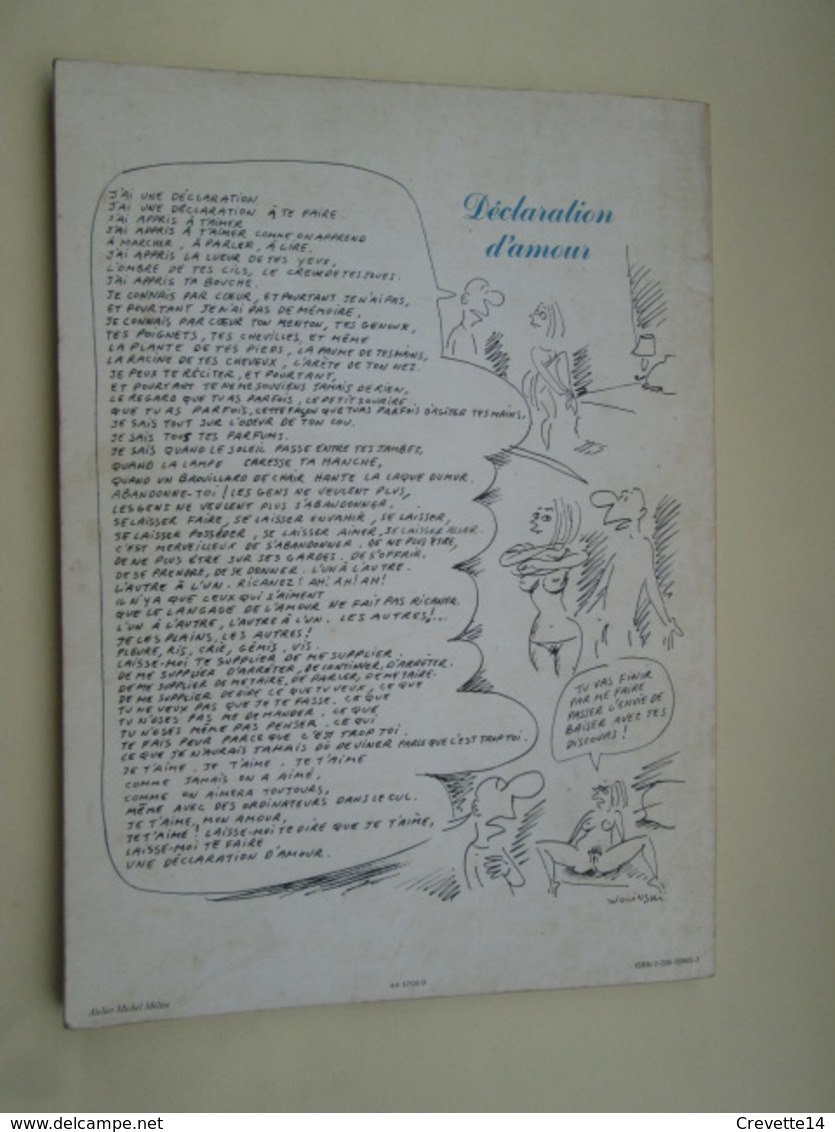 Déclaration
d'amour
J'AI UNE DÉCLARATION.
J'AI UNE DÉCLARATION À TE FAIRE.
J'AI APPRIS À T'AIMER
J'AI APPRIS À T'AIMER COMME ON APPREND
À MARCHER, À PARLER, À LIRE.
J'AI APPRIS LA LUEUR DE TES YEUX,
L'OMBRE DE TES CILS, LE CREUX DE TES JOUES.
J'AI APPRIS TA BOUCHE.
JE CONNAIS PAR CŒUR, ET POURTANT JE N'AI PAS,
ET POURTANT JE N'AI PAS DE MÉMOIRE,
JE CONNAIS PAR CŒUR TON MENTON, TES GENOUX,
TES POIGNETS, TES CHEVILLES, ET MÊME
LA PLANTE DE TES PIEDS, LA PAUME DE TES MAINS,
LA RACINE DE TES CHEVEUX, L'ARÊTE DE TON NEZ.
JE PEUX TE RÉCITER, ET POURTANT,
ET POURTANT JE NE ME SOUVIENS JAMAIS DE RIEN,
LE REGARD QUE TU AS PARFOIS, LE PETIT SOURIRE
QUE TU AS PARFOIS, CETTE FAÇON QUE TU AS PARFOIS D'AGITER TES MAINS.
JE SAIS TOUT SUR L'ODEUR DE TON COU.
JE SAIS TOUS TES PARFUMS.
JE SAIS QUAND LE SOLEIL PASSE ENTRE TES JAMBES,
QUAND LA LAMPE CARESSE TA HANCHE,
QUAND UN BROUILLARD DE CHAIR HANTE LA LAQUE DU MUR.
ABANDONNE-TOI! LES GENS NE VEULENT PLUS,
LES GENS NE VEULENT PLUS S'ABANDONNER.
SE LAISSER FAIRE, SE LAISSER ENVAHIR, SE LAISSER,
SE LAISSER POSSÉDER, SE LAISSER AIMER, SE LAISSER ALLER.
C'EST MERVEILLEUX DE S'ABANDONNER. DE NE PLUS ÊTRE,
DE NE PLUS ÊTRE SUR SES GARDES. DE S'OFFRIR.
DE SE PRENDRE, DE SE DONNER. L'UN À L'AUTRE.
L'AUTRE À L'UN. RICANEZ! AH! AH! AH!
IL N'Y A QUE CEUX QUI S'AIMENT
QUE LE LANGAGE DE L'AMOUR NE FAIT PAS RICANER.
L'UN À L'AUTRE, L'AUTRE À L'UN. LES AUTRES!...
JE LES PLAINS, LES AUTRES!
PLEURE, RIS, CRIE, GÉMIS. VIS.
LAISSE-MOI TE SUPPLIER DE ME SUPPLIER.
DE ME SUPPLIER D'ARRÊTER, DE CONTINUER, D'ARRÊTER.
DE ME SUPPLIER DE ME TAIRE, DE PARLER, DE ME TAIRE.
DE ME SUPPLIER DE DIRE CE QUE TU VEUX, CE QUE
TU NE VEUX PAS QUE JE TE FASSE. CE QUE
TU N'OSES PAS ME DEMANDER. CE QUE
TU N'OSES MÊME PAS PENSER. CE QUI
TE FAIS PEUR PARCE QUE C'EST TROP TOI.
CE QUE JE N'AURAIS JAMAIS DÛ DEVINER PARCE QUE C'EST TROP TOI.
JE T'AIME. JE T'AIME. JE T'AIME
COMME JAMAIS ON A AIMÉ,
COMME ON AIMERA TOUJOURS,
MÊME AVEC DES ORDINATEURS DANS LE CUL.
JE T'AIME, MON AMOUR,
JE T'AIME! LAISSE-MOI TE DIRE QUE JE T'AIME,
LAISSE-MOI TE FAIRE
UNE DÉCLARATION D'AMOUR.
TU VAS FINIR
PAR ME FAIRE
PASSER L'ENVIE DE
BAISER AVEC TES
DISCOURS!
WOLINSKI
Atelier Michel Méline
www.delcampe.net
Crevette14